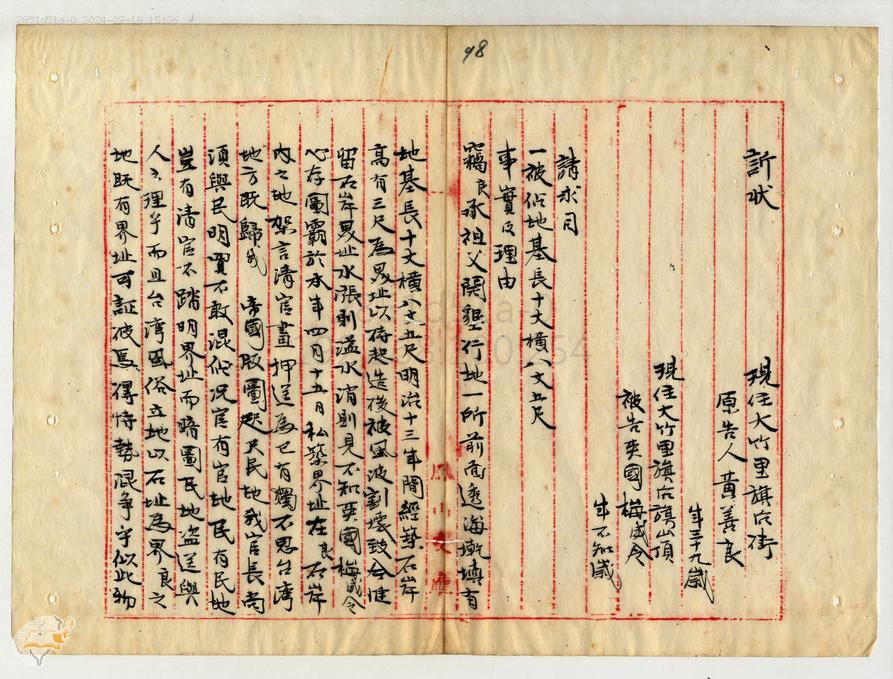 2851d51a-0 2024-09-18 15:36
98
訴狀
現住大竹里旗后街
原告人黃善良
年三十九歲
現住大竹里旗后旗山頂
被告英國梅威令
年不知歲
請求目
一被佔地基長十丈橫八丈五尺
事實及理由
竊良承祖父開墾行地一所前面透海墘填有
地基長十丈橫八丈五尺明治十三年間經築石岸
高有三尺為界址以待起造後被風波割壞致今惟
留石岸界址水漲則溢水消則見不知英國梅威令
心存圖霸於本年四月十五日私築界址在良石岸
內之地架言清官畫押送為己有獨不思台湾
地方既歸我 帝國版圖尺民地我官長尚
須與民明買不敢混佔况官有官地民有民地
豈有清官不踏明界址而暗圖民地盗送與
人之理乎而且台湾風俗立地以石址為界良之
地既有界址可証彼焉得恃勢混争乎似此物
鳳山支廳